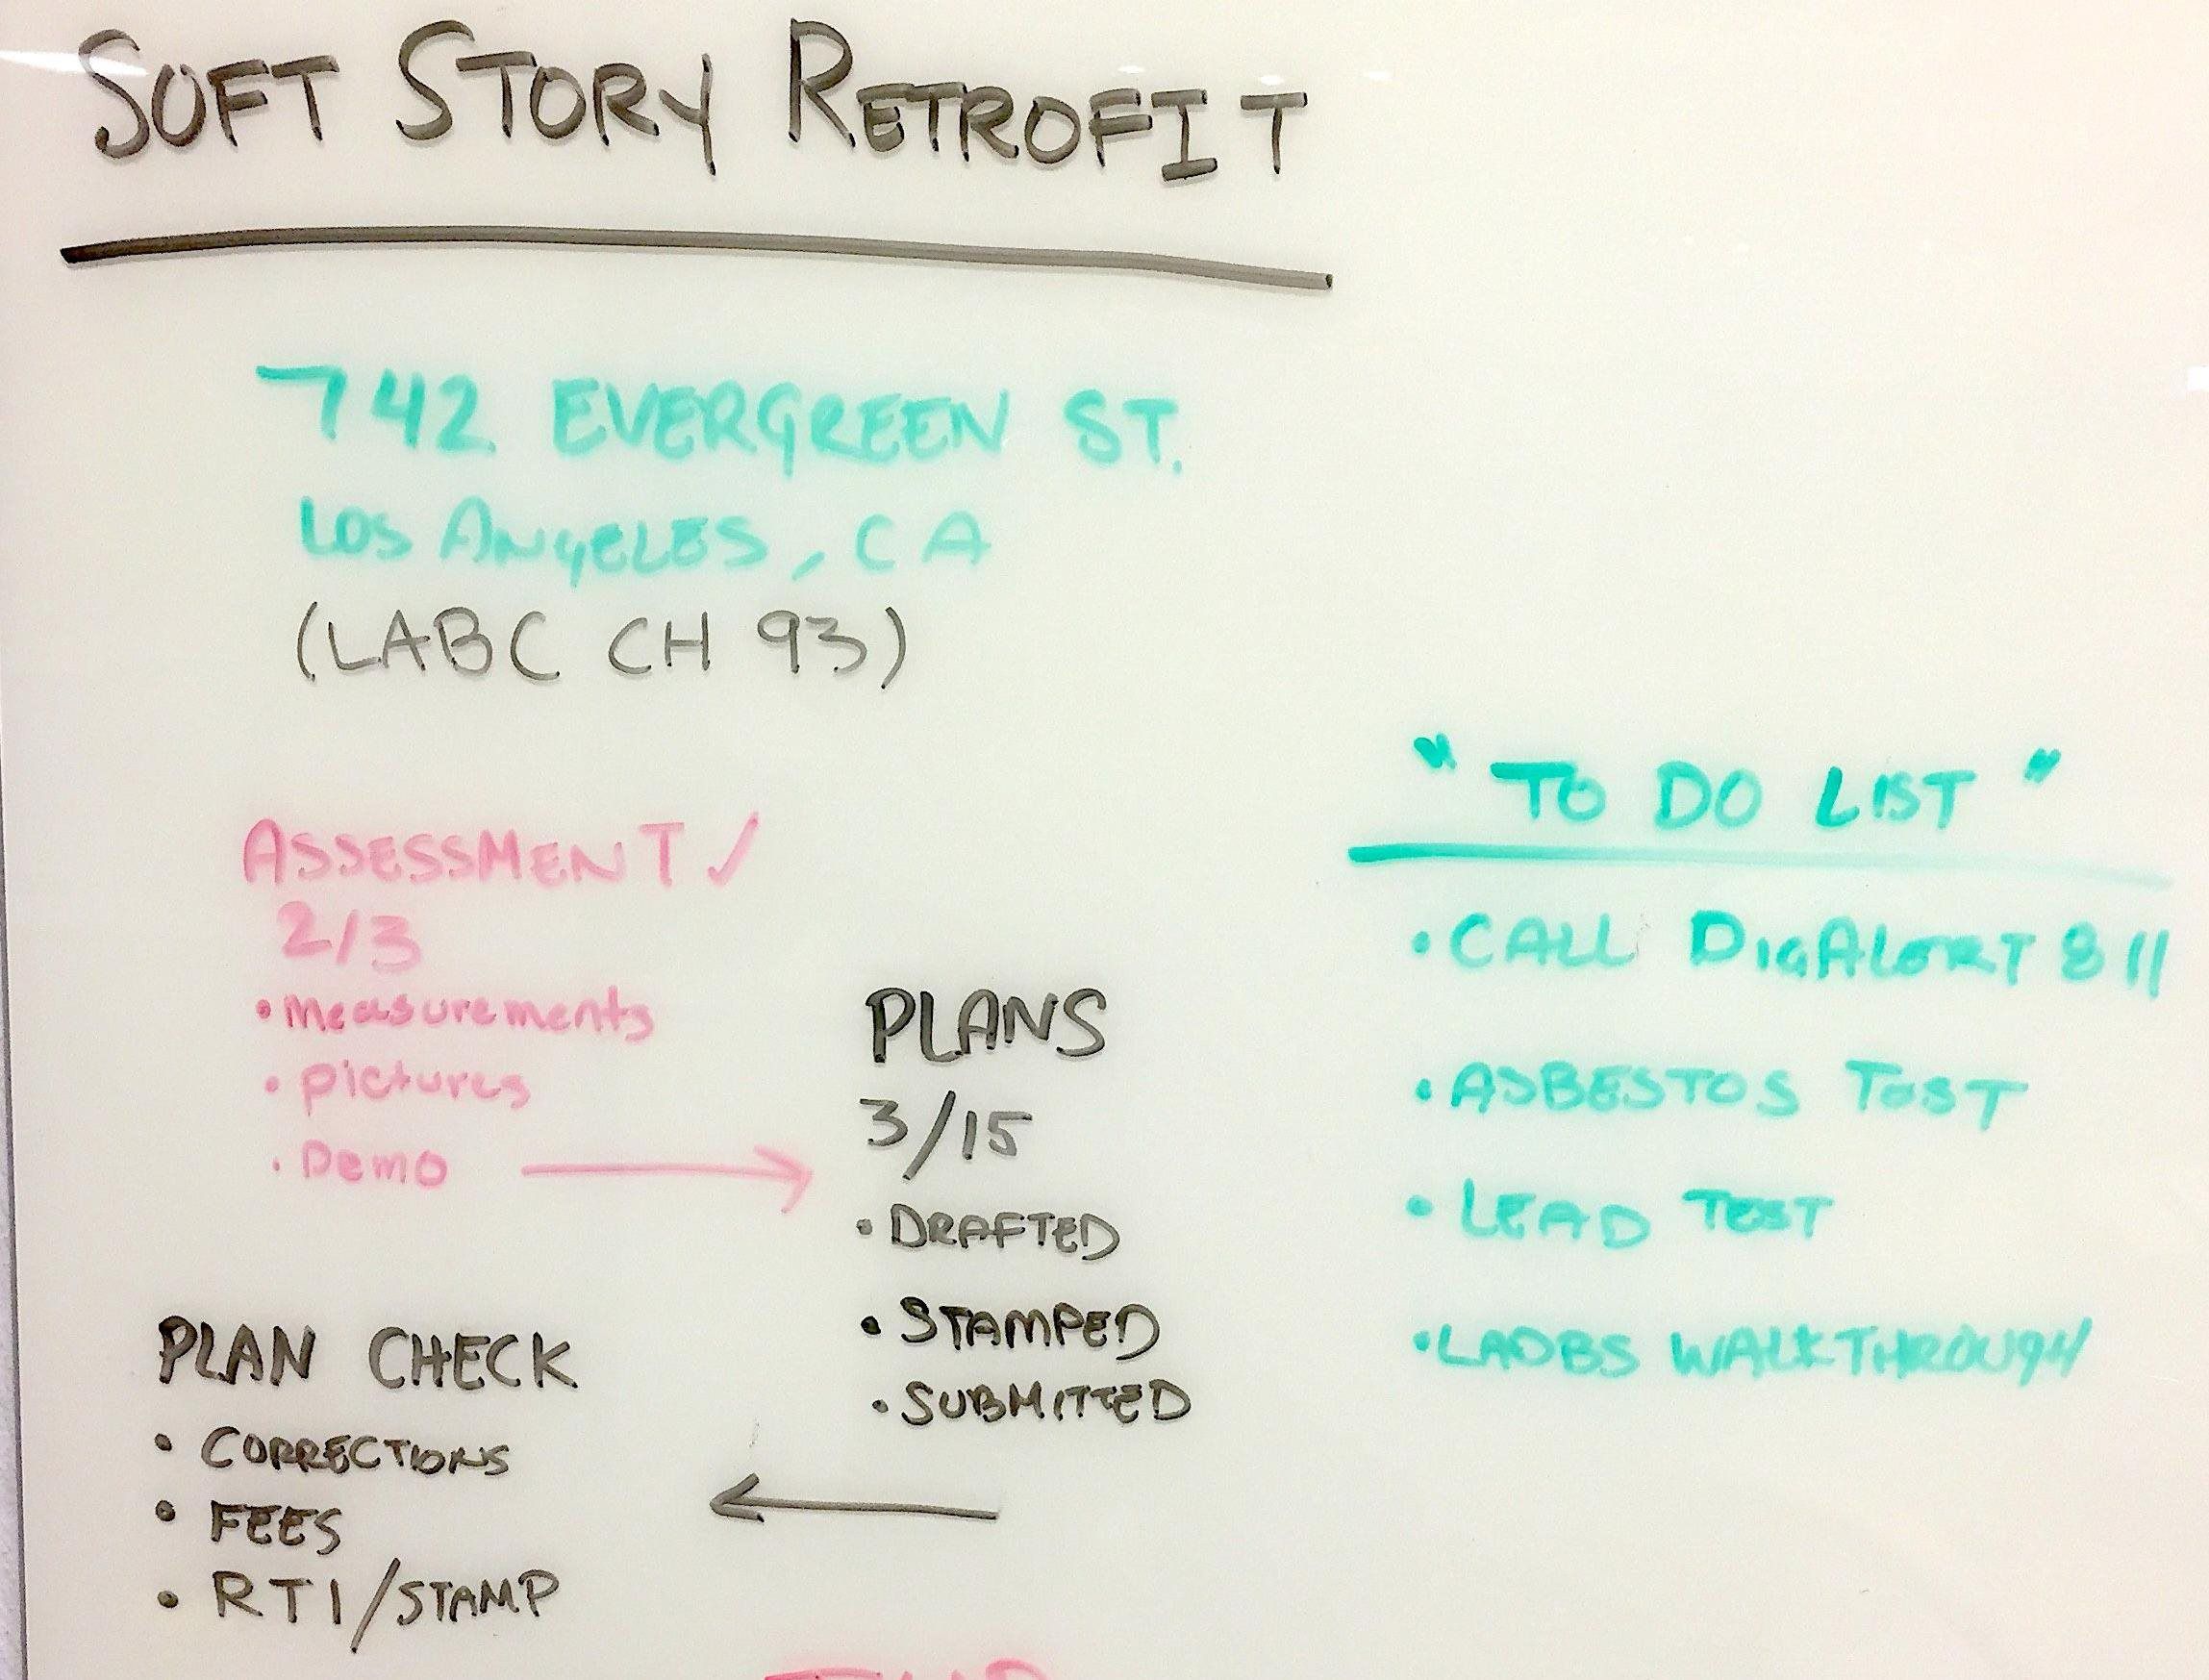 SOFT STORY RETROFIT
742 EVERGREEN ST.
LOS ANGELES, CA
(LABC CH 93)
ASSESSMENT ✓
2/3
• Measurements
• Pictures
• Demo
PLANS
3/15
• DRAFTED
• STAMPED
• SUBMITTED
PLAN CHECK
• CORRECTIONS
• FEES
• RTI/STAMP
"TO DO LIST"
• CALL DIGALERT 811
• ASBESTOS TEST
• LEAD TEST
• LADBS WALKTHROUGH